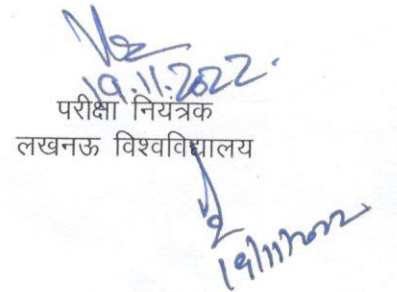 19.11.2022.
परीक्षा नियंत्रक
लखनऊ विश्वविद्यालय
19/11/2022